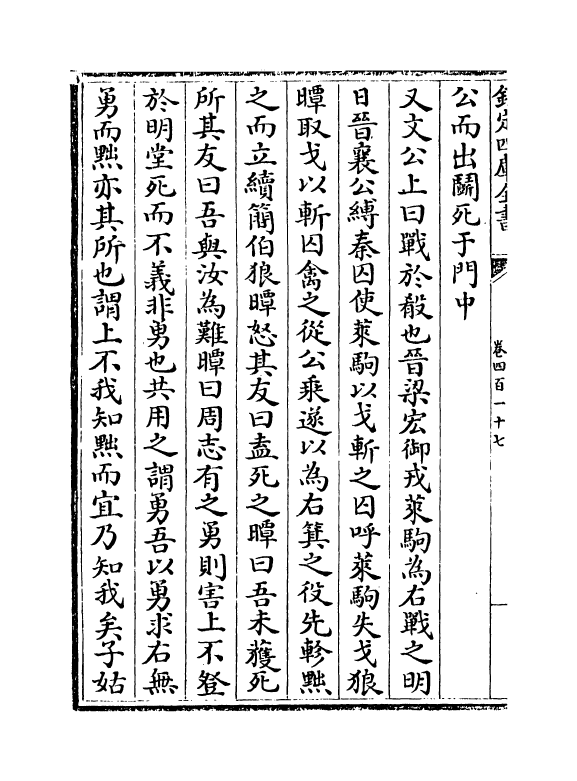 欽定四庫全書
卷四百一十七
公而出鬬死于門中
又文公上曰戰於殽也晉梁宏御戎萊駒為右戰之明
日晉襄公縛秦囚使萊駒以戈斬之囚呼萊駒失戈狼
瞫取戈以斬囚禽之從公乘遂以為右箕之役先軫黜
之而立續簡伯狼瞫怒其友曰盍死之瞫曰吾未獲死
所其友曰吾與汝為難瞫曰周志有之勇則害上不登
於明堂死而不義非勇也共用之謂勇吾以勇求右無
勇而黜亦其所也謂上不我知黜而宜乃知我矣子姑